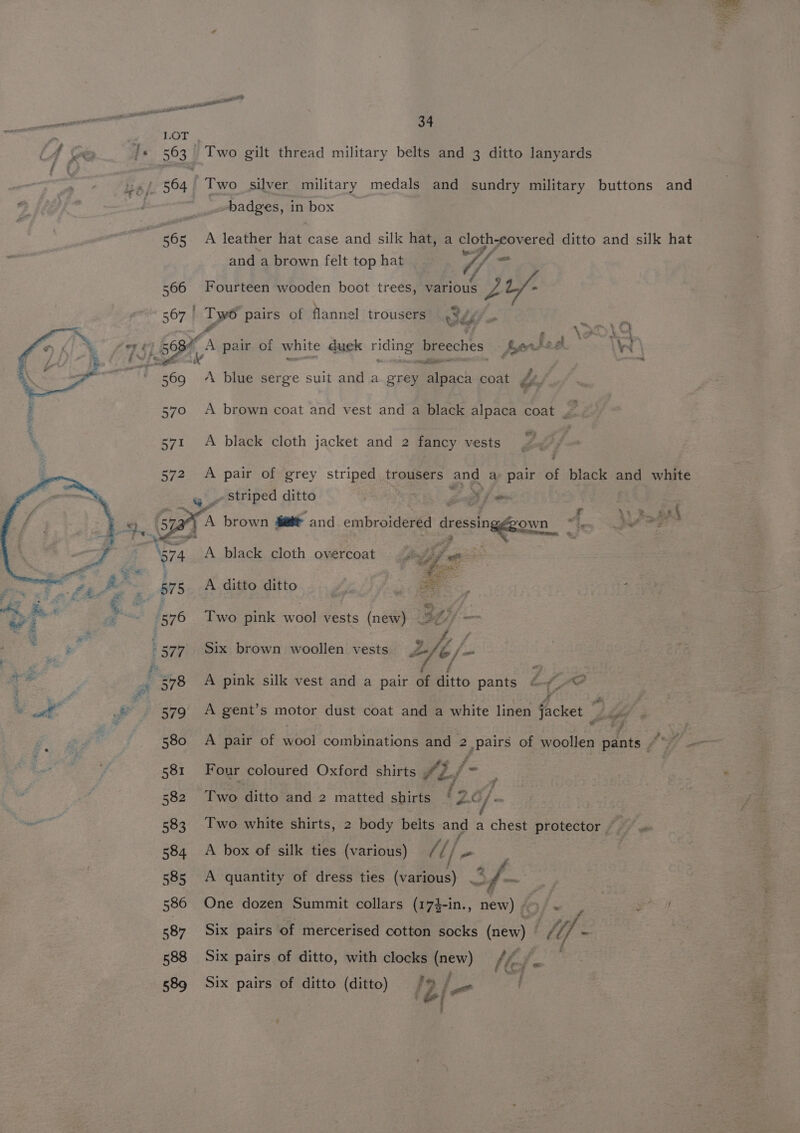 34
LOT
563 Two gilt thread military belts and 3 ditto lanyards
564 Two silver military medals and sundry military buttons and
badges, in box
565 A leather hat case and silk hat, a cloth-covered ditto and silk hat
and a brown felt top hat
566 Fourteen wooden boot trees, various
567 Two pairs of flannel trousers
568 A pair of white duck riding breeches
569 A blue serge suit and a grey alpaca coat
570 A brown coat and vest and a black alpaca coat
571 A black cloth jacket and 2 fancy vests
572 A pair of grey striped trousers and a pair of black and white
striped ditto
573 A brown and embroidered dressing gown
574 A black cloth overcoat
575 A ditto ditto
576 Two pink wool vests (new)
577 Six brown woollen vests
578 A pink silk vest and a pair of ditto pants
579 A gent's motor dust coat and a white linen jacket
580 A pair of wool combinations and 2 pairs of woollen pants
581 Four coloured Oxford shirts
582 Two ditto and 2 matted shirts 20/-
583 Two white shirts, 2 body belts and a chest protector
584 A box of silk ties (various)
585 A quantity of dress ties (various)
586 One dozen Summit collars (17¾-in., new)
587 Six pairs of mercerised cotton socks (new)
588 Six pairs of ditto, with clocks (new)
589 Six pairs of ditto (ditto)